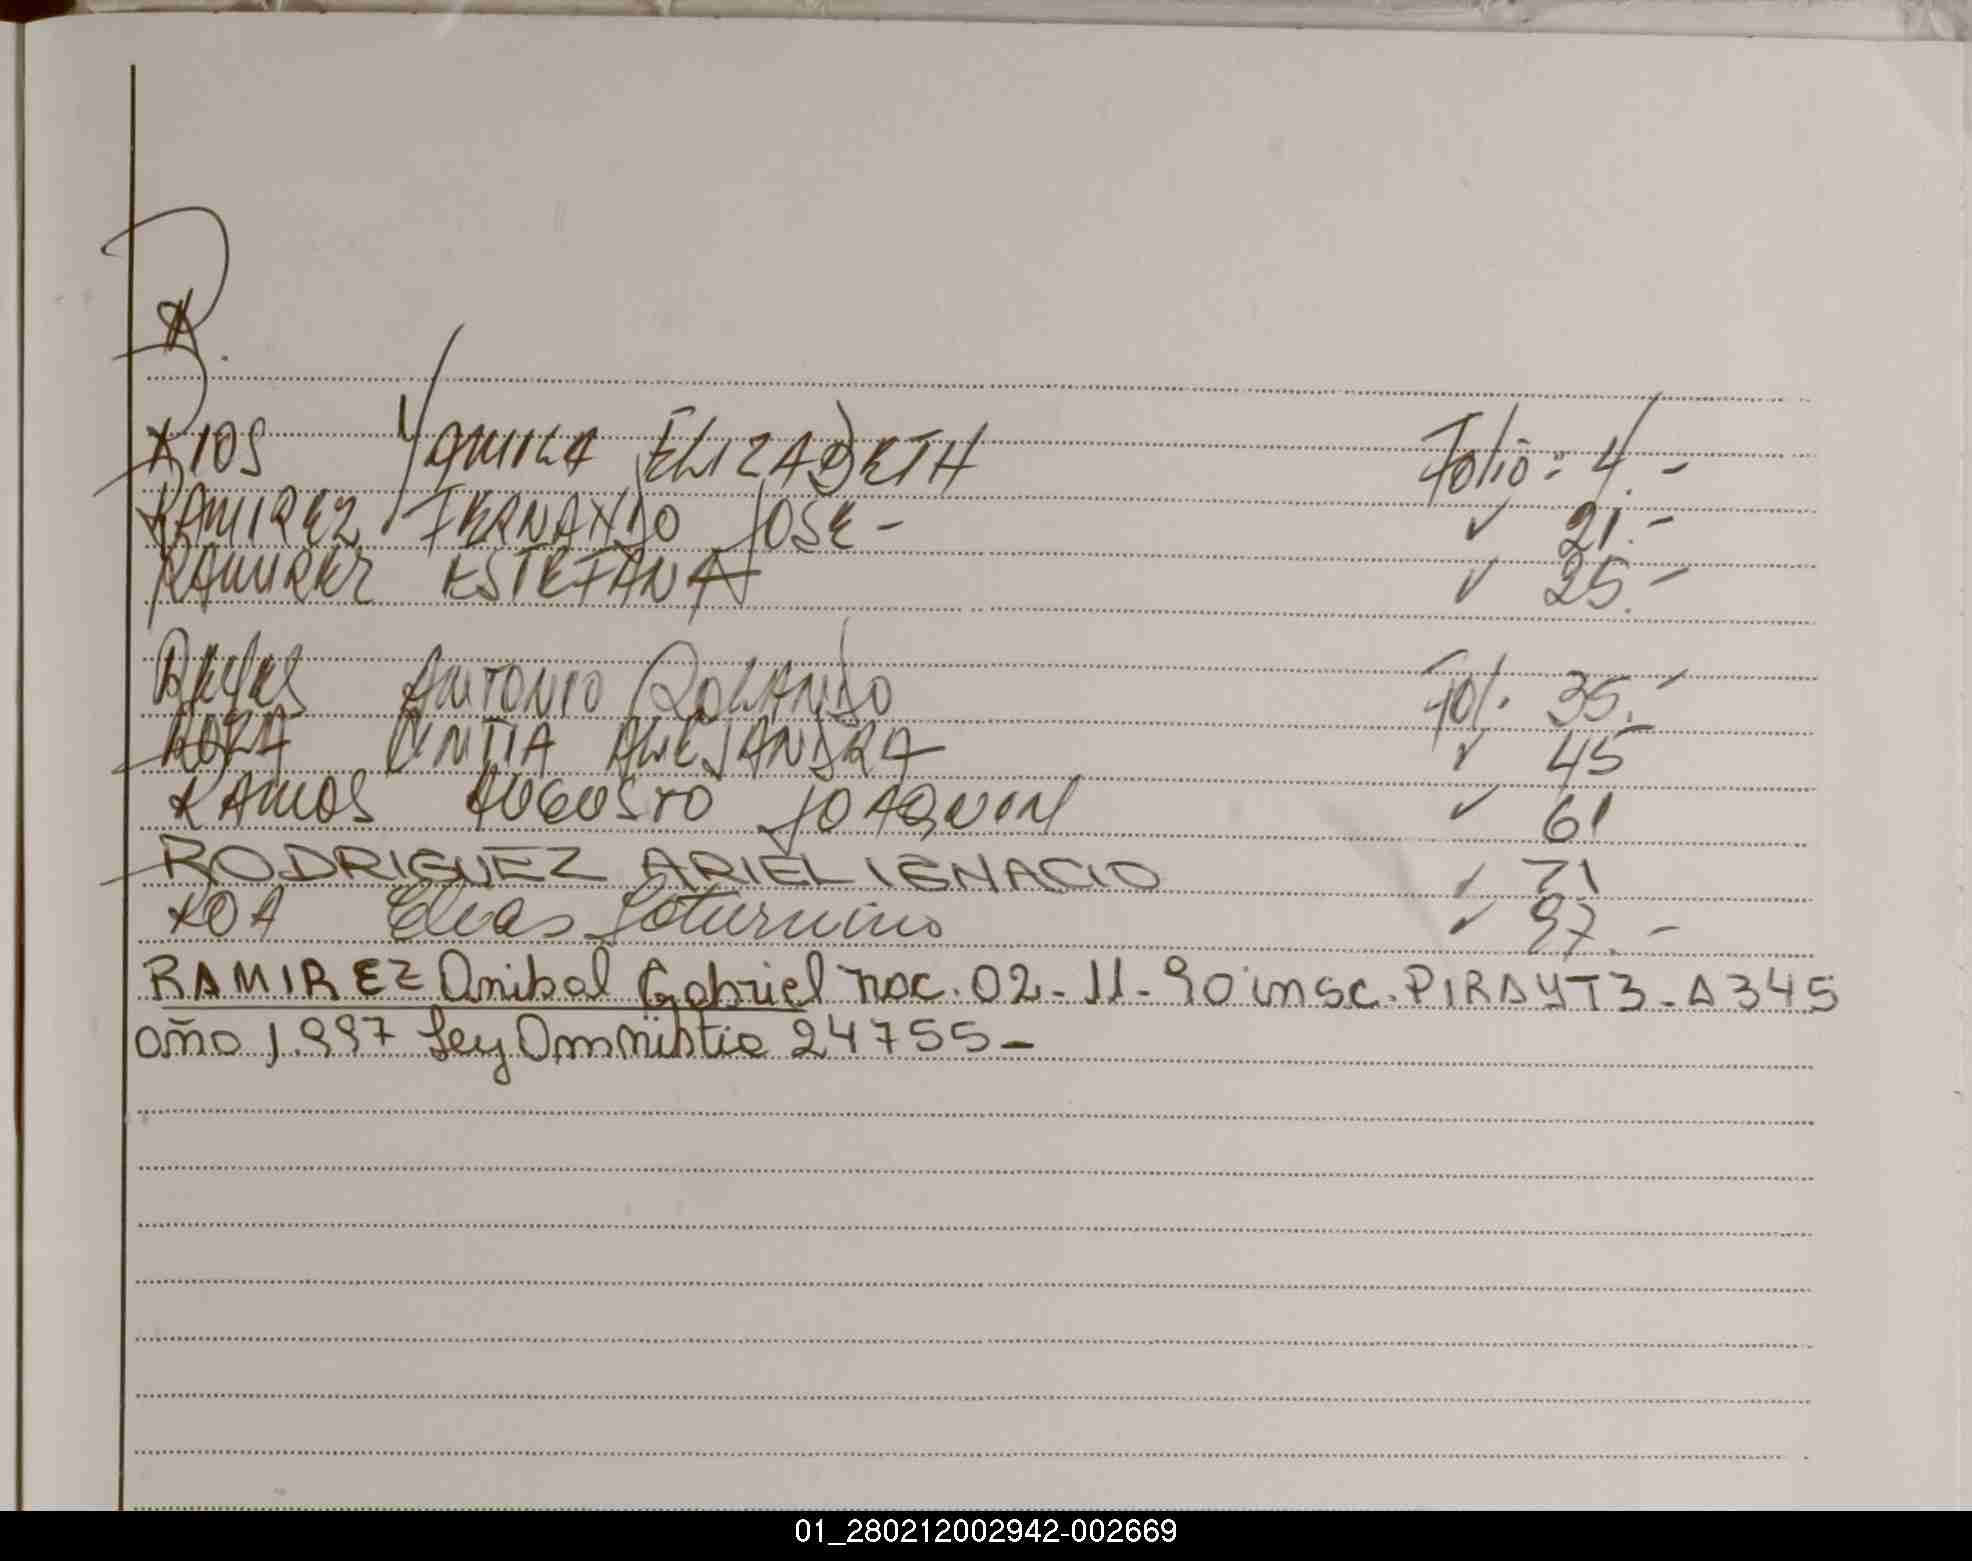 R.
RIOS YAMILA ELIZABETH Folio = 4.-
RAMIREZ FERNANDO JOSE - ✓ 21.-
RAMIREZ ESTEFANA ✓ 25.-
REYES ANTONIO ROLANDO Fol. 35.-
CINTIA ALEJANDRA ✓ 45
RAMOS AUGUSTO JOAQUIN ✓ 61
RODRIGUEZ ARIEL IGNACIO ✓ 71
ROA Elias Saturnino ✓ 97.-
RAMIREZ Anibal Gabriel nac. 02-11-90 insc. PIRAY T3-A345
año 1.997 Ley Omnistia 24755-
01_280212002942-002669